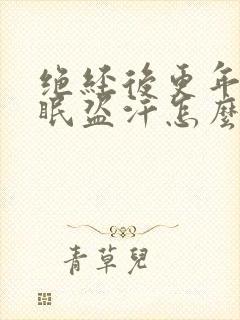 绝经后更年
眠盗汗怎麼
青草兒